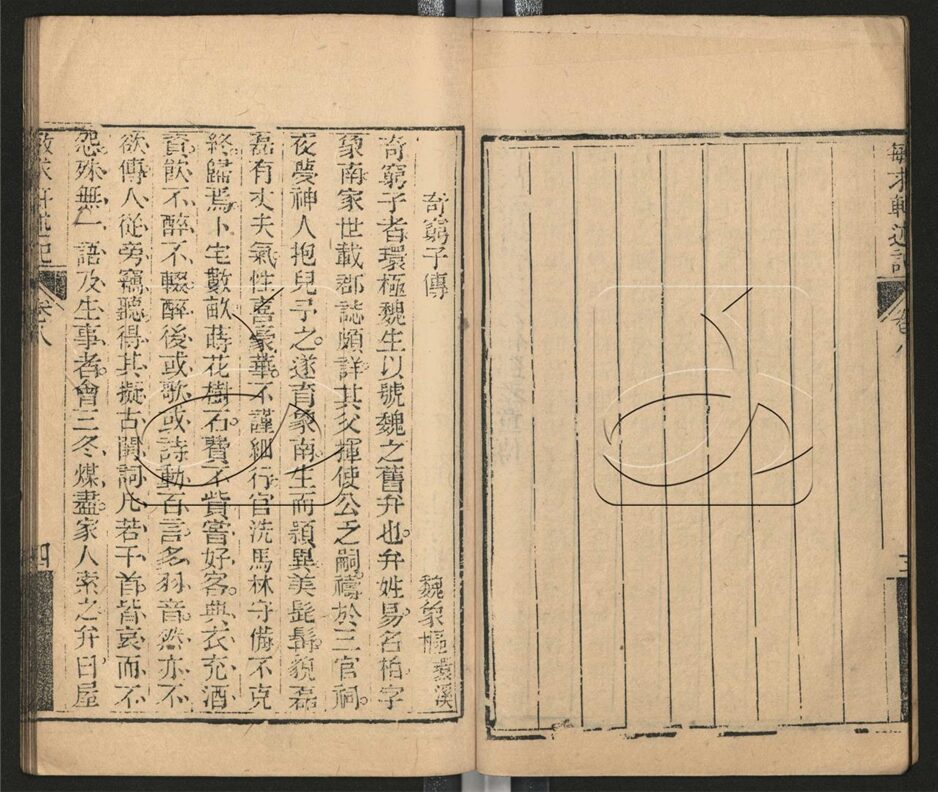 敏求軒述記
卷八
三
奇窮子傳
魏象樞 環溪
奇窮子者環極魏生以號魏之舊弁也弁姓易名柏字
象南家世載郡誌頗詳其父揮使公乏嗣禱於三官祠
夜夢神人抱兒子之遂育象南生而穎異美髭髯貌磊
磊有丈夫氣性喜豪華不謹細行官洗馬林守備不克
終歸焉卜宅數畝蒔花樹石費不貲嘗好客典衣充酒
資飲不醉不輟醉後或歌或詩動百言多羽音然亦不
欲傳人從旁竊聽得其擬古闕詞凡若干首皆哀而不
怨殊無一語及生事者會三冬煤盡家人索之弁曰屋
敏求軒述記
卷八
四